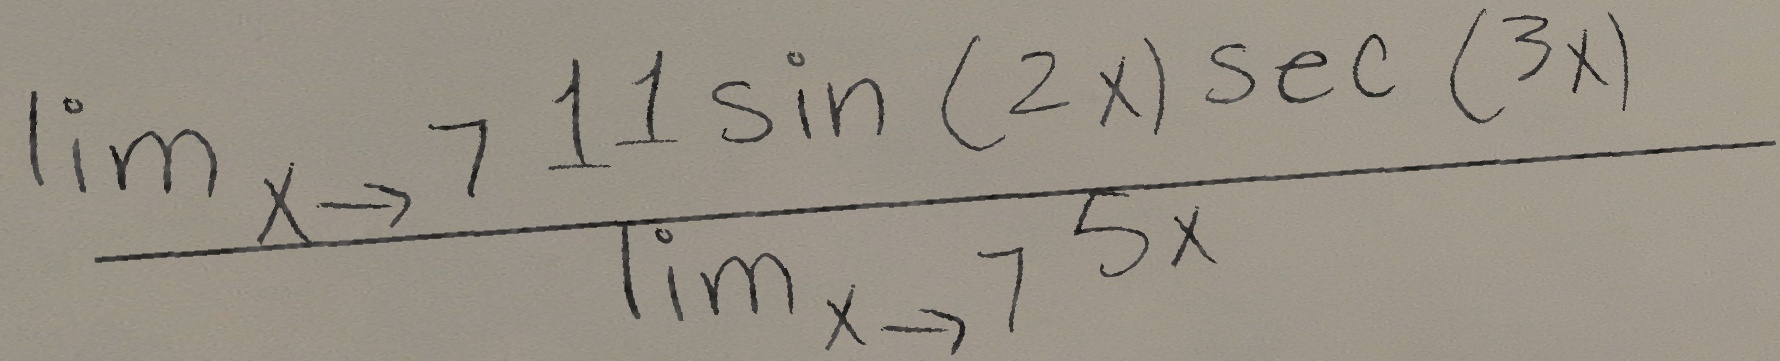 lim x→7 11 sin (2x) sec (3x)
lim x→7 5x